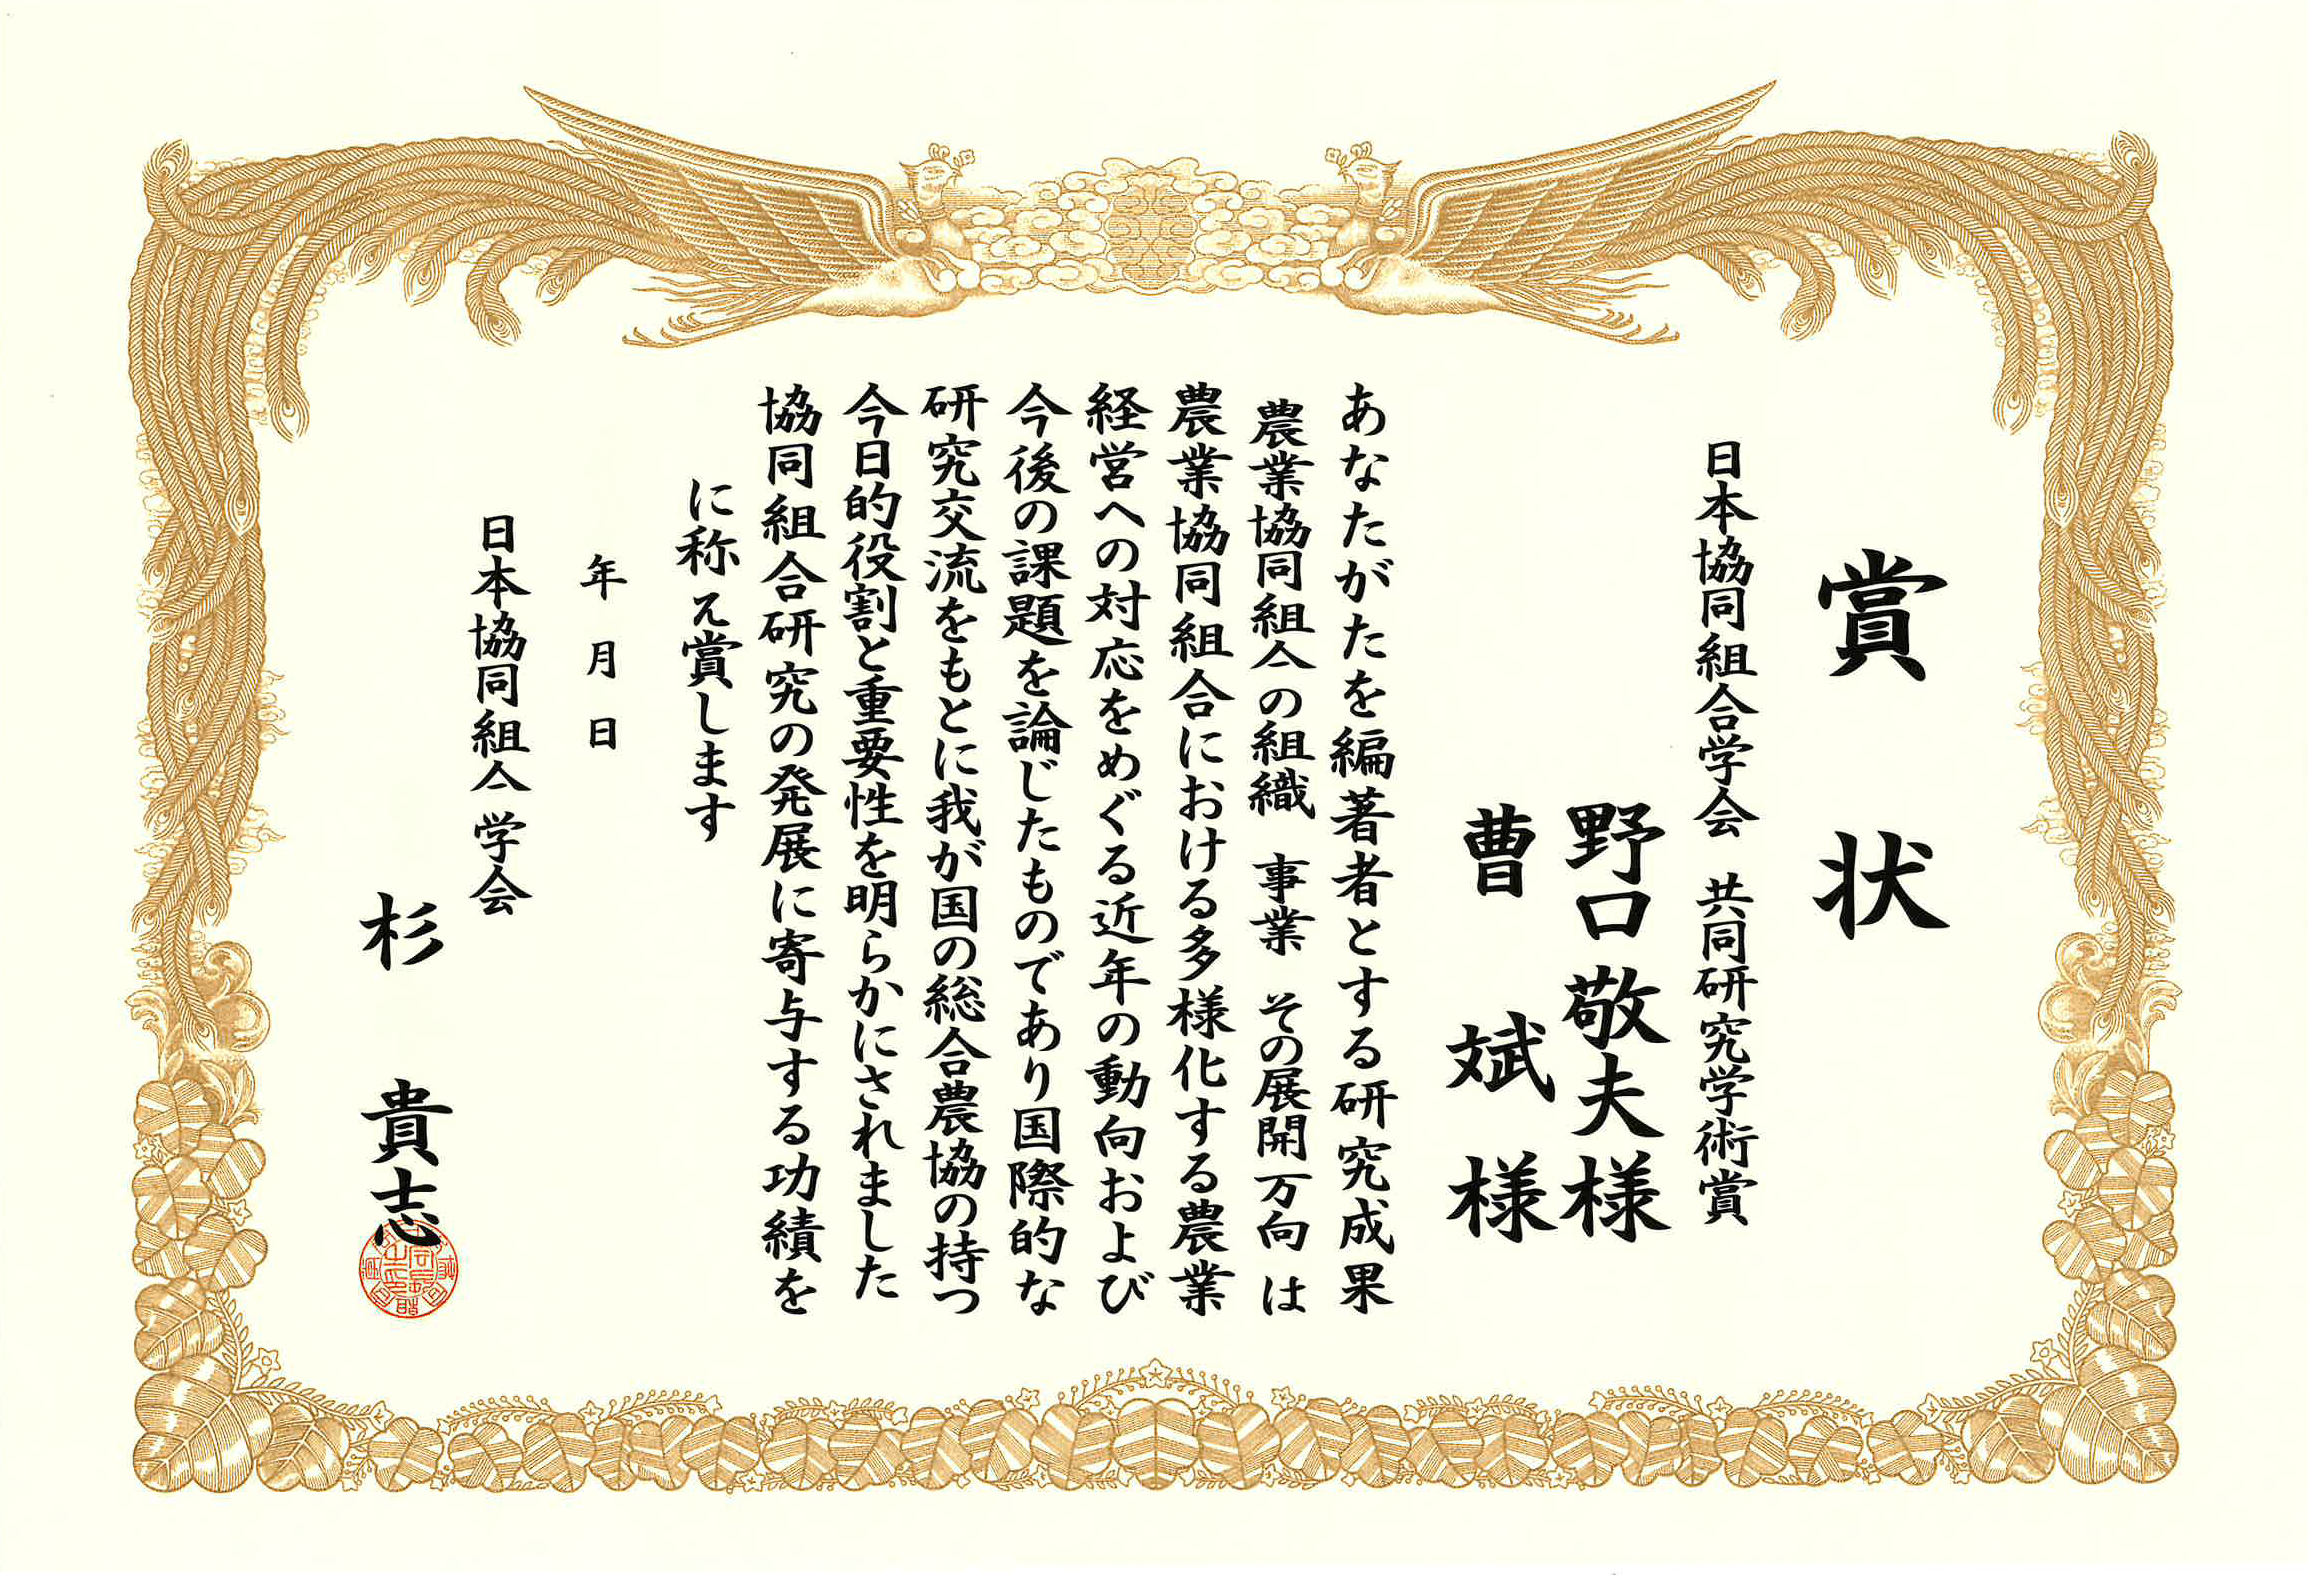 賞状
日本協同組合学会 共同研究学術賞
野口敬夫様
曹斌様
あなたがたを編著者とする研究成果
農業協同組合の組織 事業 その展開方向 は
農業協同組合における多様化する農業
経営への対応をめぐる近年の動向および
今後の課題を論じたものであり国際的な
研究交流をもとに我が国の総合農協の持つ
今日的役割と重要性を明らかにされました
協同組合研究の発展に寄与する功績を
に称え賞します
年 月 日
日本協同組合学会
杉 貴志